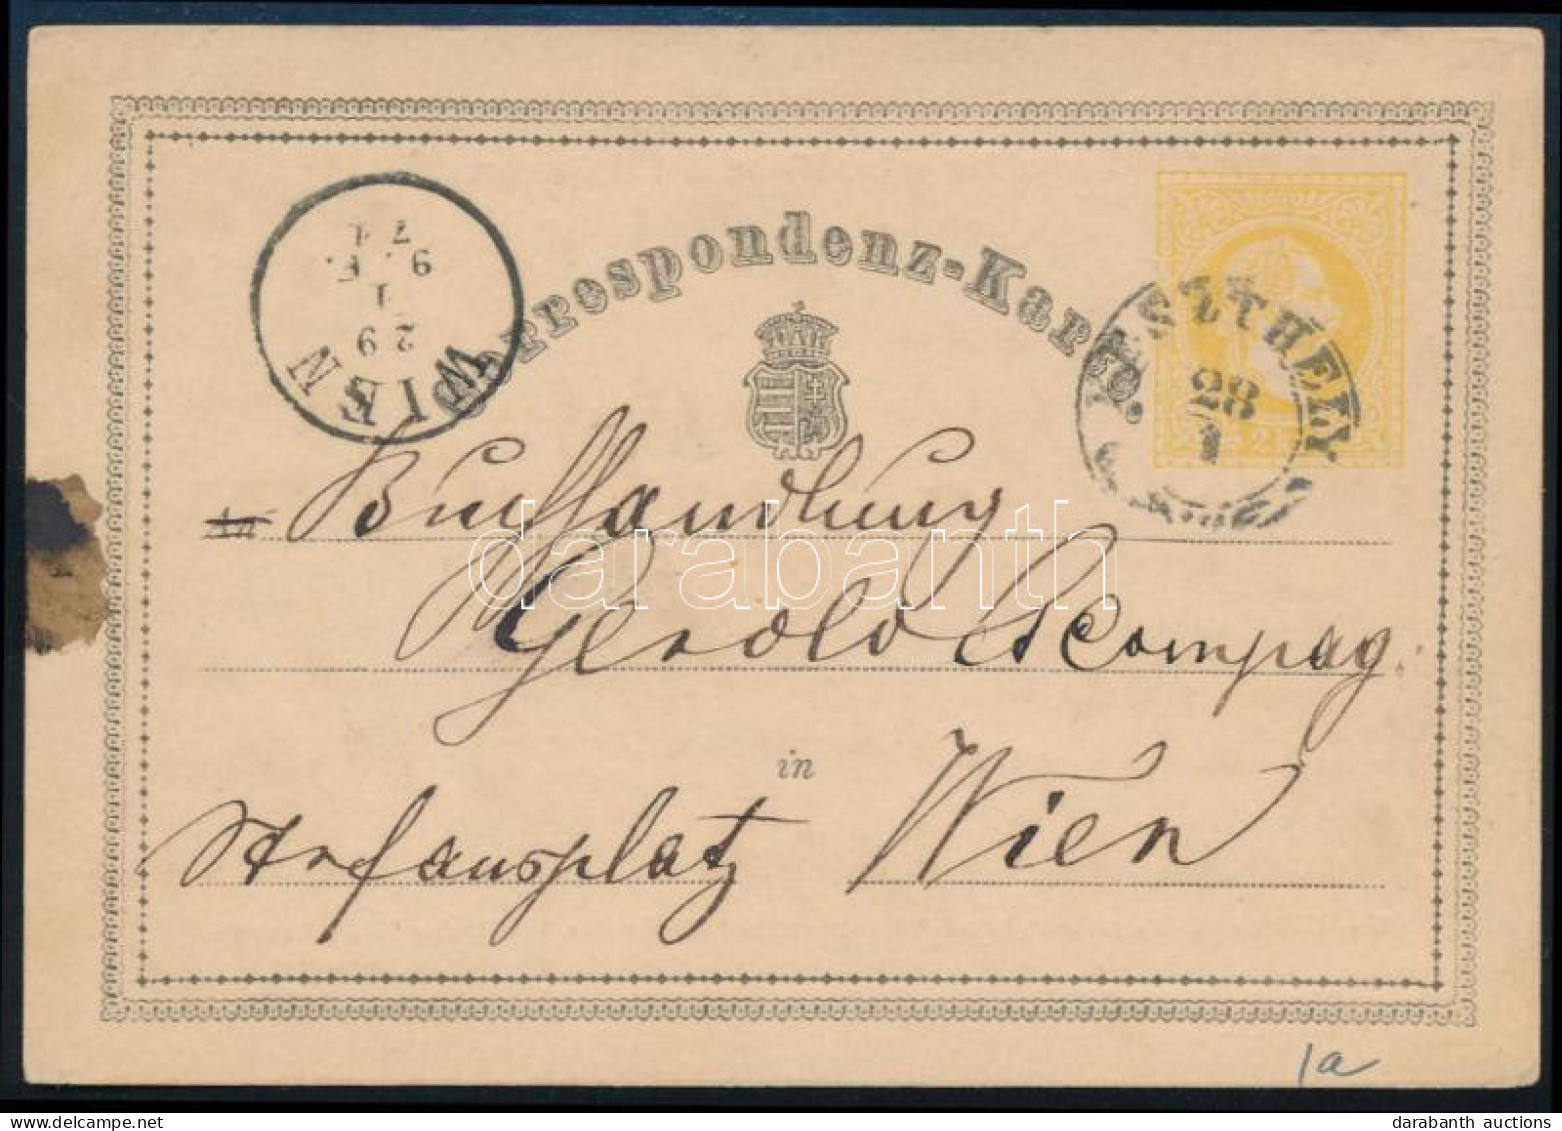 Correspondenz-Karte.
WIEN
29
1
9. F.
71
KESZTHELY
28
1
2
Buchhandlung
Gerold & Compag.
in
Stefansplatz Wien
1a
darabanth
darabanth auctions